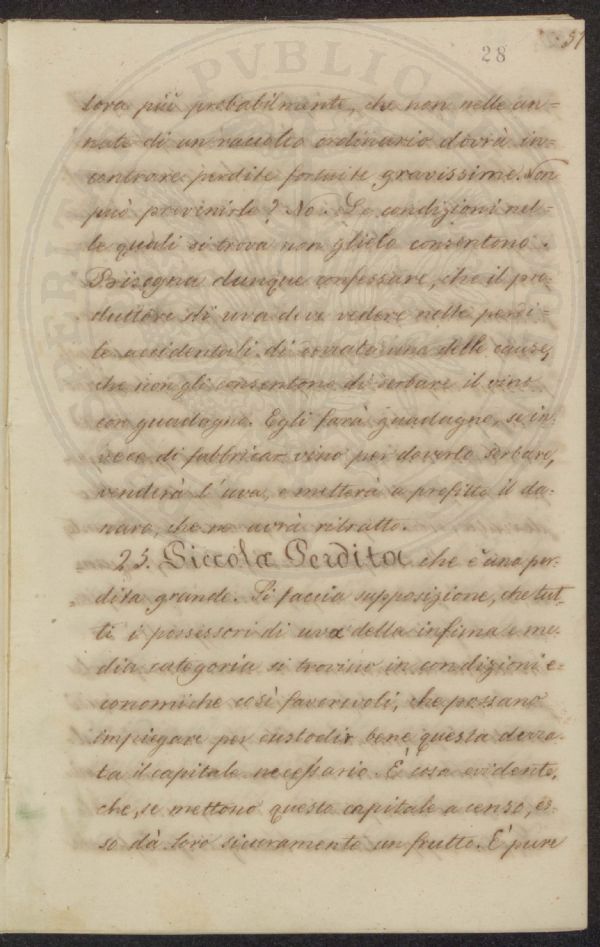 28
37
lora più probabilmente, che non nelle an=
nate di un raccolto ordinario dovrà in=
contrare perdite fortuite gravissime. Non
può prevenirle? No. Le condizioni nel=
le quali si trova non glielo consentono.
Bisogna dunque confessare, che il pro=
duttore di uva deve vedere nelle perdi=
te accidentali di una delle cause,
che non gli consentono di serbare il vino
con guadagno. Egli farà guadagno, se in=
vece di fabbricar vino per doverlo serbare,
venderà l'uva, e metterà a profitto il da=
naro, che ne avrà ritratto.
25. Piccola Perdita che è una per=
dita grande. Si faccia supposizione, che tut=
ti i possessori di uva della infima e me=
dia categoria si trovino in condizioni e=
conomiche così favorevoli, che possano
impiegare per custodir bene questa derra=
ta il capitale necessario. È cosa evidente,
che, se mettono questo capitale a censo, es=
so dà loro sicuramente un frutto. È pure